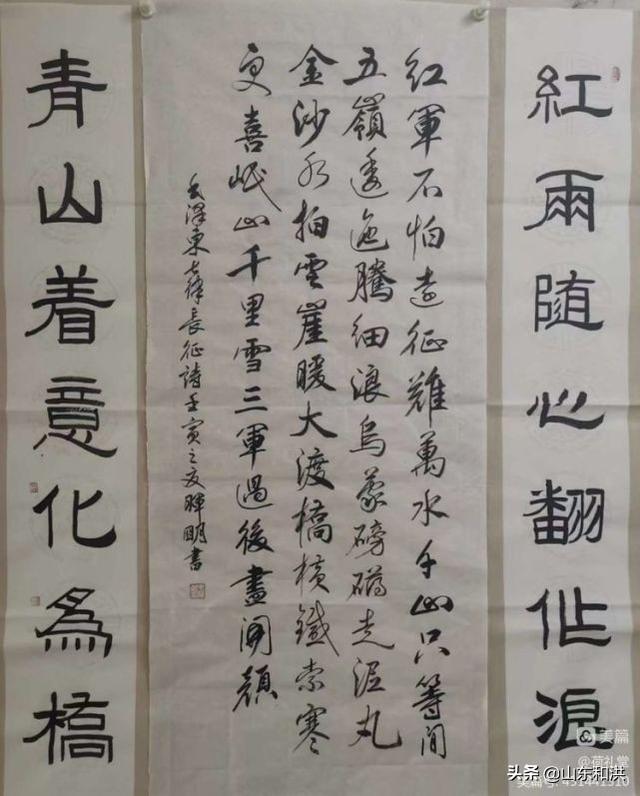 紅雨随心翻作浪
紅軍不怕遠征難萬水千山只等閒
五嶺逶迤騰細浪烏蒙磅礴走泥丸
金沙水拍雲崖暖大渡橋横鐵索寒
更喜岷山千里雪三軍過後盡開顔
毛澤東七律長征詩壬寅之夏暉明書
青山着意化爲橋
美篇
@荷礼堂
头条 @山东和洪